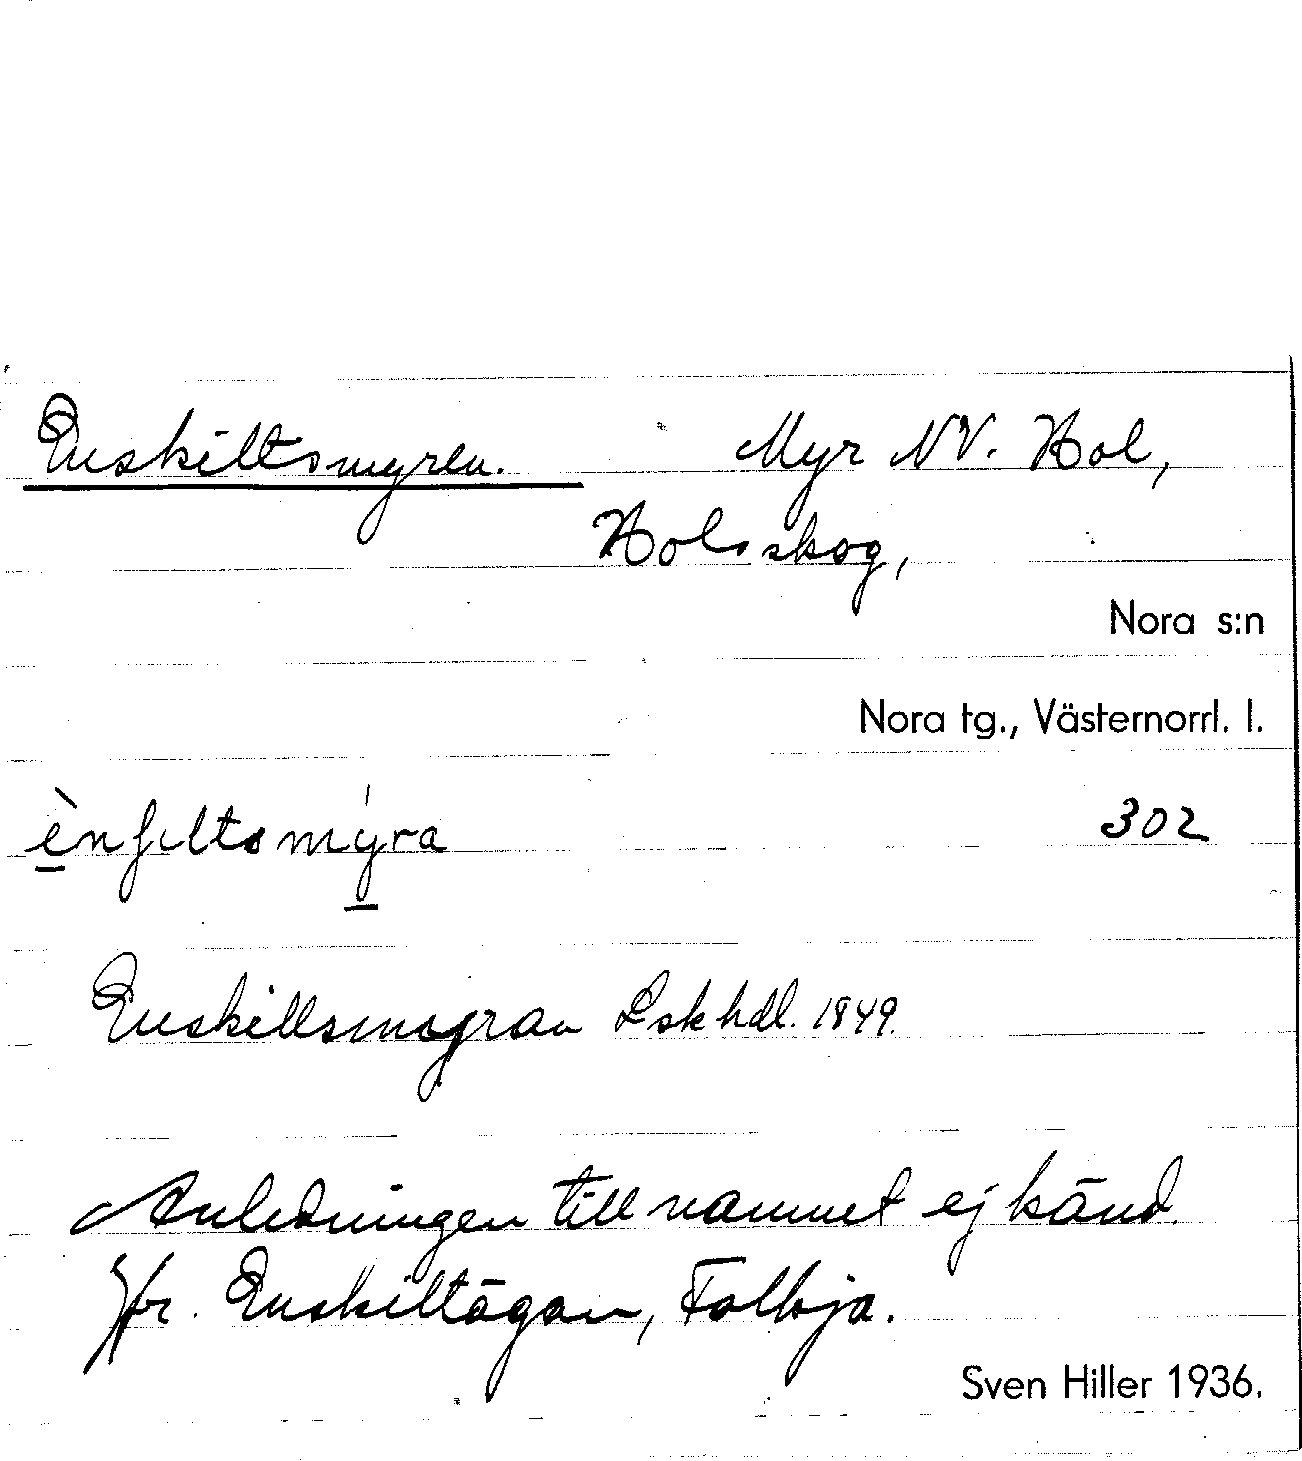 Enskiltsmyren. Myr NV. Hol,
Holsskog,
Nora s:n
Nora tg., Västernorrl. l.
ènʃiltsmýra 302
Enskillsmyran Lskhdl. 1849.
Anledningen till namnet ej känd.
Jfr. Enskiltägan, Folkja.
Sven Hiller 1936.